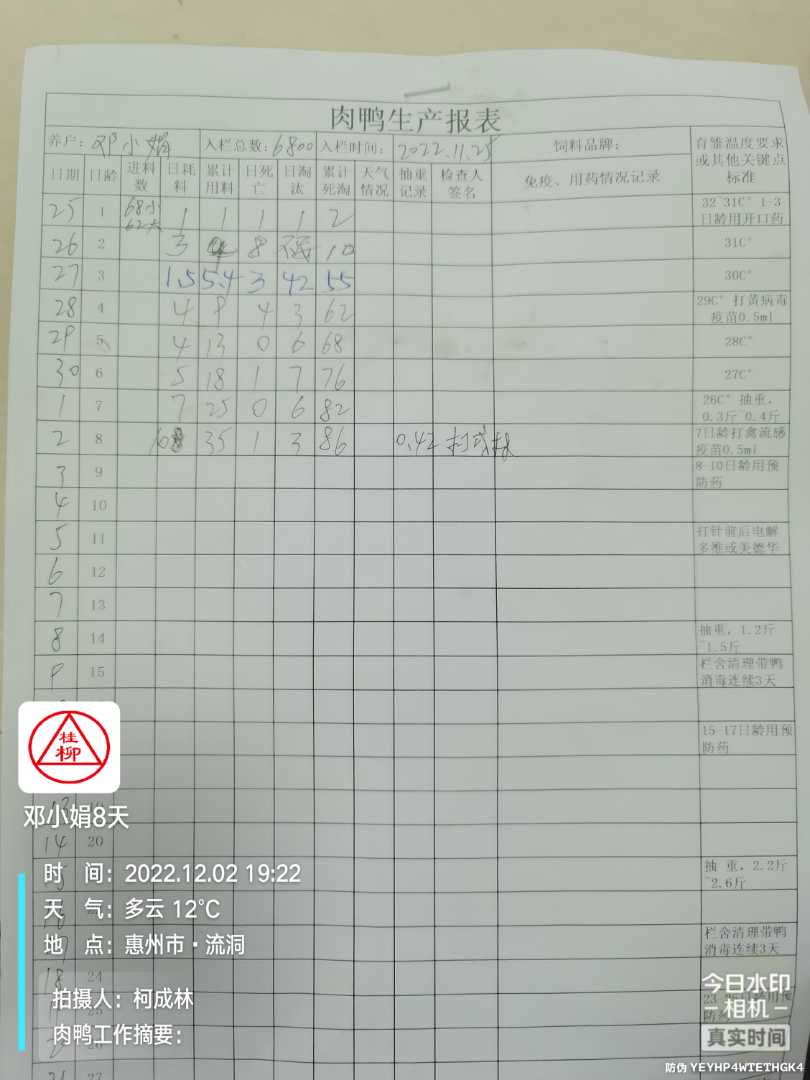 肉鸭生产报表
养户: 邓小娟 入栏总数: 6800 入栏时间: 2022.11.25 饲料品牌: 育雏温度要求或其他关键点标准
日期 日龄 进料数 日耗料 累计用料 日死亡 日淘汰 累计死淘 天气情况 抽重记录 检查人签名 免疫、用药情况记录
25 1 68小 62大 1 1 1 1 2 32~31C° 1-3日龄用开口药
26 2 3 4 8 10 31C°
27 3 1.5 5.4 3 42 55 30C°
28 4 4 9 4 3 62 29C° 打黄病毒疫苗0.5ml
29 5 4 13 0 6 68 28C°
30 6 5 18 1 7 76 27C°
1 7 7 25 0 6 82 26C° 抽重，0.3斤~0.4斤
2 8 35 1 3 86 0.42 7日龄打禽流感疫苗0.5ml
3 9 8-10日龄用预防药
4 10
5 11 打针前后电解多维或美德华
6 12
7 13
8 14 抽重，1.2斤~1.5斤
9 15 栏舍清理带鸭消毒连续3天
15-17日龄用预防药
桂柳
13
邓小娟8天
14 20
抽 重，2.2斤~2.6斤
时 间: 2022.12.02 19:22
天 气: 多云 12℃
地 点: 惠州市·流洞
栏舍清理带鸭消毒连续3天
18 24
拍摄人: 柯成林
25
肉鸭工作摘要:
26
27
今日水印
相机
真实时间
防伪 YEYHP4WTETHGK4